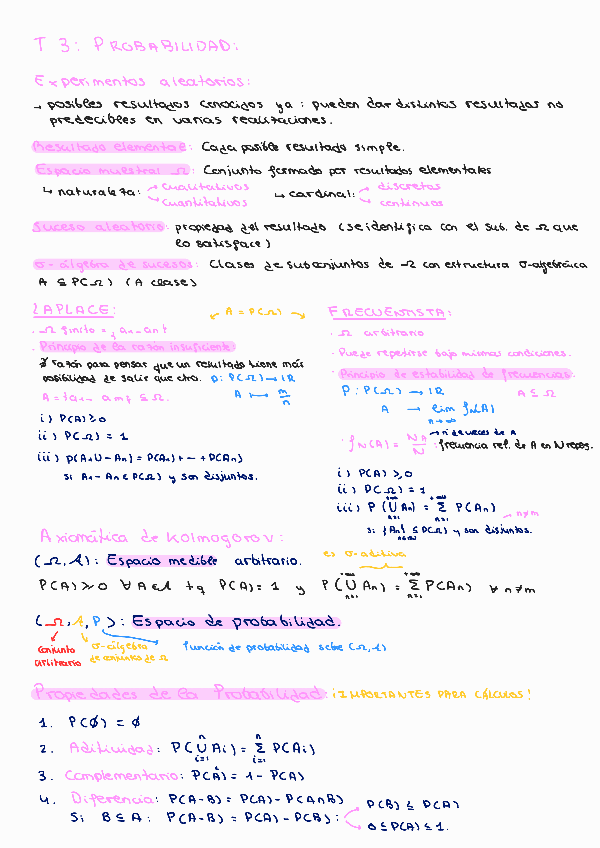 T 3: PROBABILIDAD:
Experimentos aleatorios:
→ posibles resultados conocidos ya: pueden dar distintos resultados no
predecibles en varias realizaciones.
Resultado elemental: Cada posible resultado simple.
Espacio muestral Ω: Conjunto formado por resultados elementales
↳ naturaleza: cualitativos
cuantitativos
↳ cardinal: discretos
continuos
Suceso aleatorio: propiedad del resultado (se identifica con el sub. de Ω que
lo satisface)
σ-álgebra de sucesos: Clases de subconjuntos de Ω con estructura σ-algebráica
A ⊆ P(Ω) (A clase)
LAPLACE:
← A = P(Ω) →
· Ω finito = {a₁...aₙ}
· Principio de la razón insuficiente
∄ razón para pensar que un resultado tiene más
posibilidad de salir que otro. p: P(Ω) → IR
A = {a₁... aₘ} ⊆ Ω. A ↦ m/n
i) P(A) ≥ 0
ii) P(Ω) = 1
iii) P(A₁∪...Aₙ) = P(A₁) + ... + P(Aₙ)
si A₁...Aₙ ∈ P(Ω) y son disjuntos.
FRECUENTISTA:
· Ω arbitrario
· Puede repetirse bajo mismas condiciones.
· Principio de estabilidad de frecuencias.
P: P(Ω) → IR A ⊆ Ω
A → lim fₙ(A)
n→∞
→ nº de veces de A
· f_N(A) = N_A/N : frecuencia rel. de A en N repes.
i) P(A) ≥ 0
ii) P(Ω) = 1
iii) P(⋃ₙ₌₁^{+∞} Aₙ) = Σₙ₌₁^{+∞} P(Aₙ) → n≠m
si {Aₙ} ⊆ P(Ω) y son disjuntos.
Axiomática de Kolmogorov:
(Ω, A): Espacio medible arbitrario.
es σ-aditiva
P(A) ≥ 0 ∀ A ∈ A tq P(A) = 1 y P(⋃ₙ₌₁^{+∞} Aₙ) = Σₙ₌₁^{+∞} P(Aₙ) ∀ n≠m
(Ω, A, P): Espacio de probabilidad.
conjunto arbitrario
σ-álgebra de conjuntos de Ω
función de probabilidad sobre (Ω, A)
Propiedades de la Probabilidad: ¡IMPORTANTES PARA CÁLCULOS!
1. P(∅) = ∅
2. Aditividad: P(⋃ᵢ₌₁ⁿ Aᵢ) = Σᵢ₌₁ⁿ P(Aᵢ)
3. Complementario: P(Aᶜ) = 1 - P(A)
4. Diferencia: P(A-B) = P(A) - P(A∩B)
Si B ⊆ A: P(A-B) = P(A) - P(B): P(B) ≤ P(A)
0 ≤ P(A) ≤ 1.